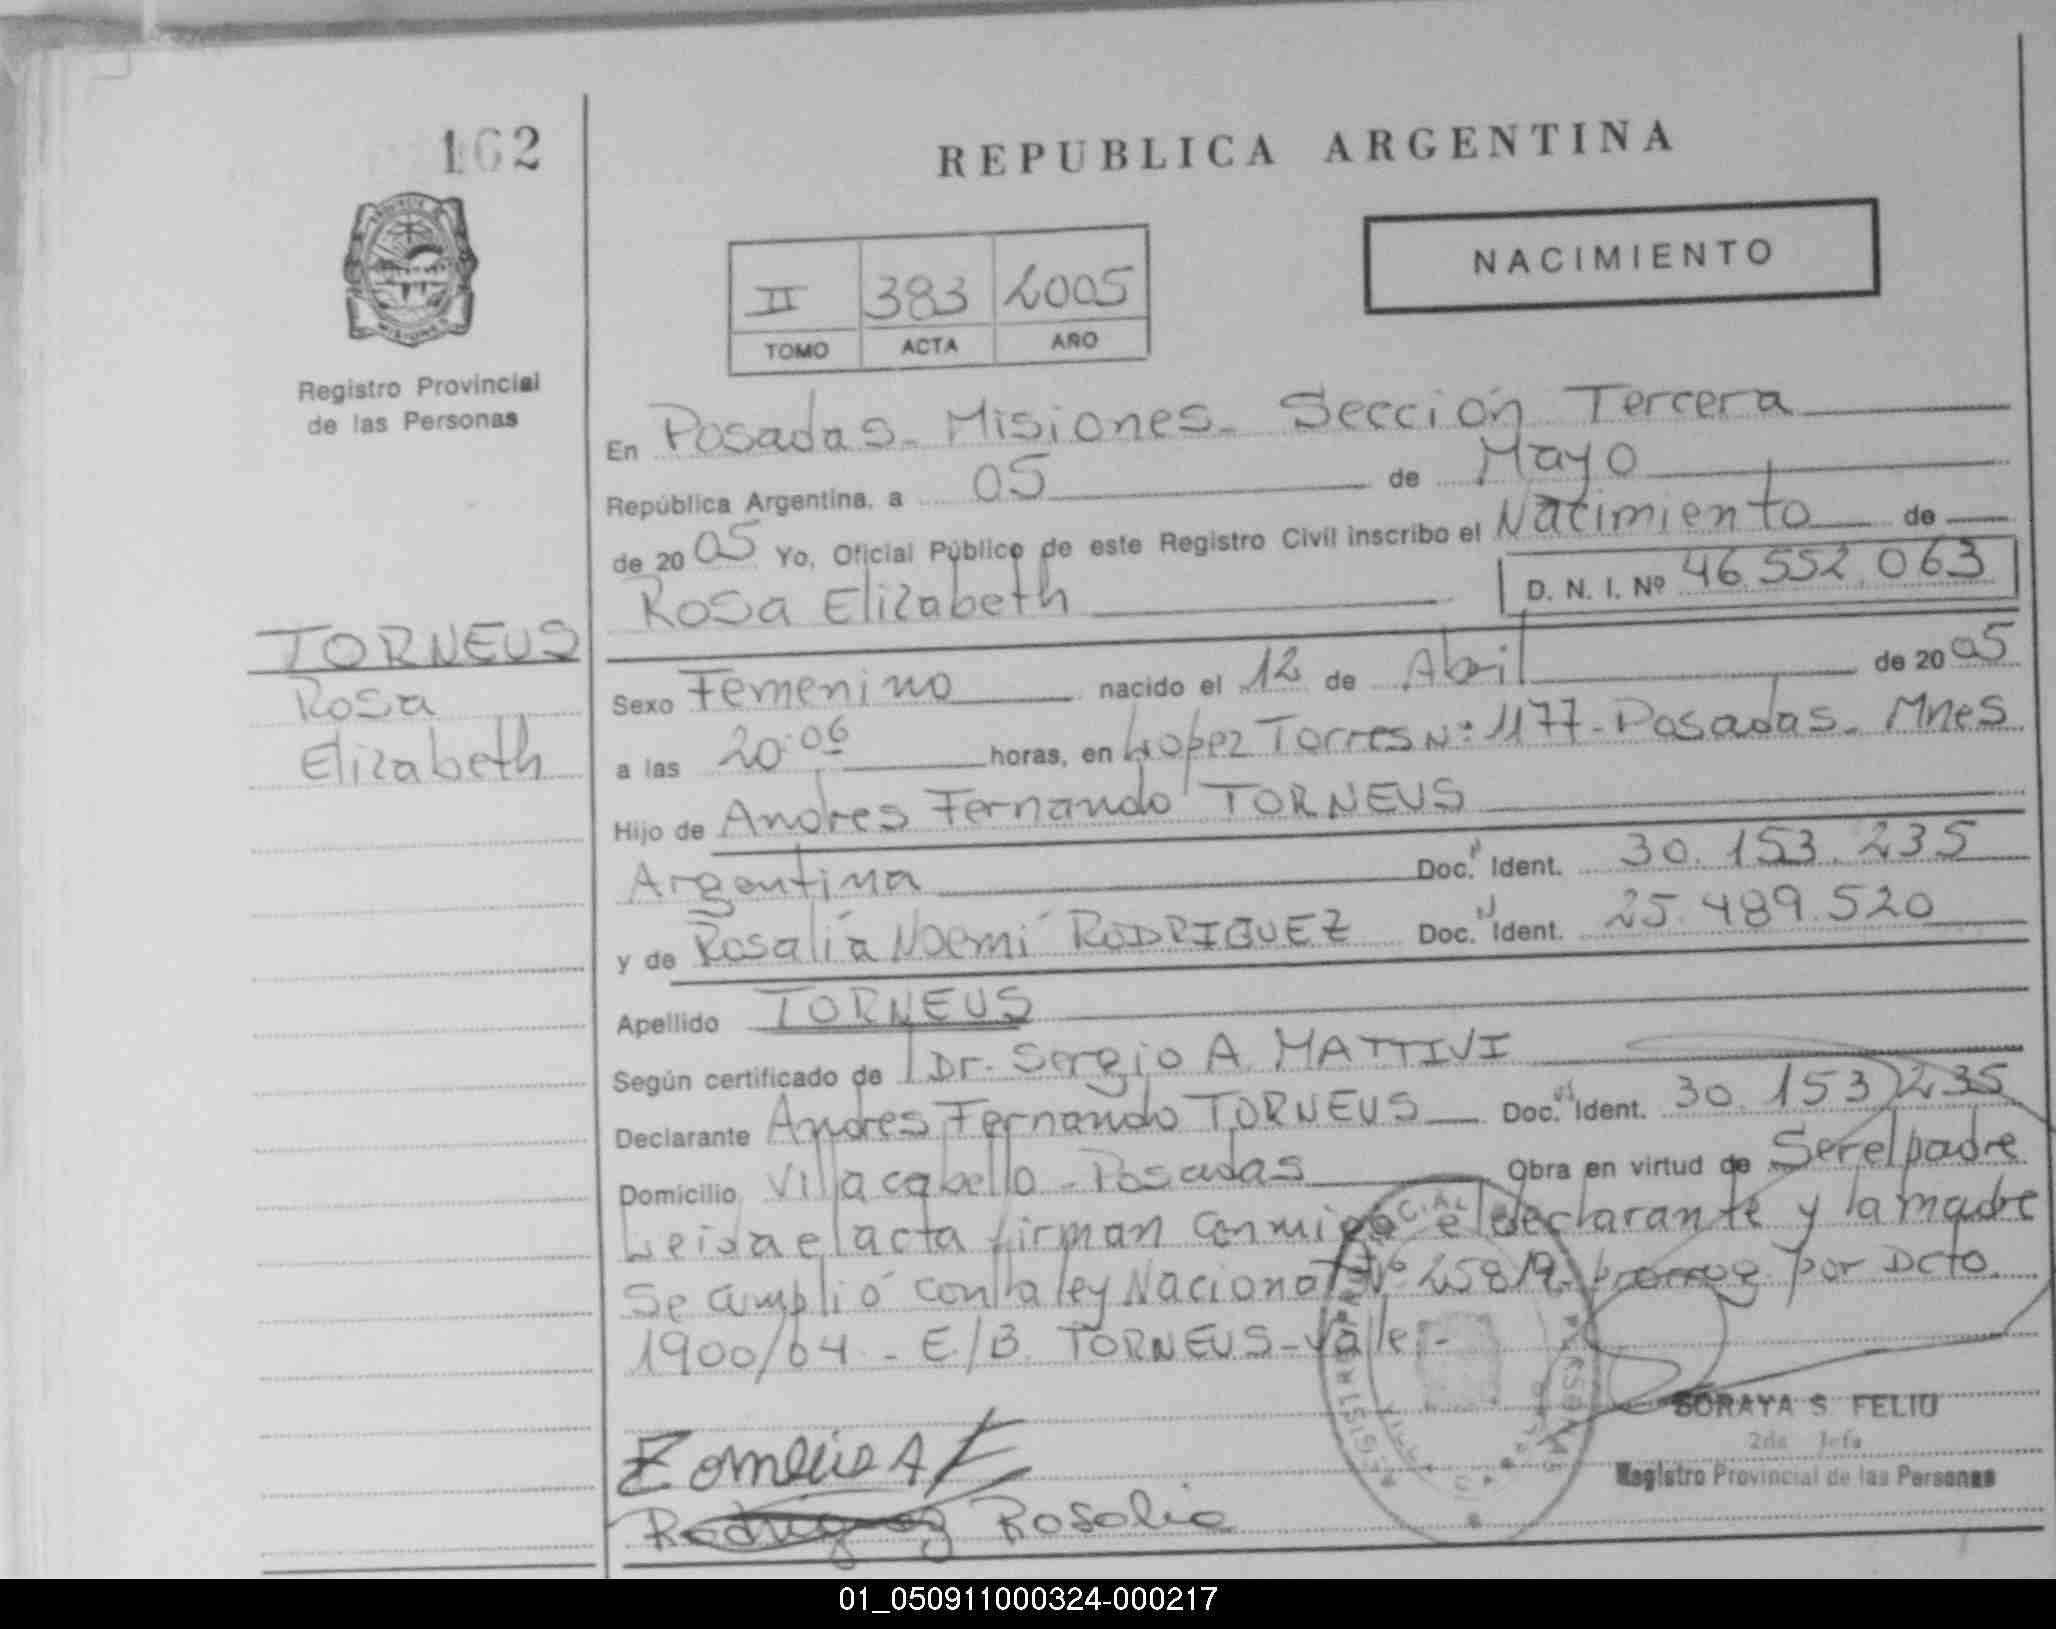 162
REPUBLICA ARGENTINA
NACIMIENTO
II 383 2005
TOMO ACTA AÑO
Registro Provincial
de las Personas
En Posadas - Misiones - Sección Tercera
República Argentina, a 05 de Mayo
de 2005 Yo, Oficial Público de este Registro Civil inscribo el Nacimiento de
Rosa Elizabeth D. N. I. Nº 46.552.063
TORNEUS
Rosa
Elizabeth
Sexo Femenino nacido el 12 de Abril de 2005
a las 20:06 horas, en Lopez Torres Nº 1177 - Posadas - Mnes
Hijo de Andres Fernando TORNEUS
Argentina Doc. Ident. 30.153.235
y de Rosalía Noemí RODRIGUEZ Doc. Ident. 25.489.520
Apellido TORNEUS
Según certificado de Dr. Sergio A. MATTIVI
Declarante Andres Fernando TORNEUS Doc. Ident. 30.153.235
Domicilio Villa cabello - Posadas Obra en virtud de Ser el padre
Leida el acta firman conmigo el declarante y la madre
Se cumplió con la ley Nacional Nº 25819 - prorrog por Dcto
1900/04 - E/B. TORNEUS - Valle -
SORAYA S. FELIU
2da Jefa
Registro Provincial de las Personas
Rodriguez Rosalia
01_050911000324-000217